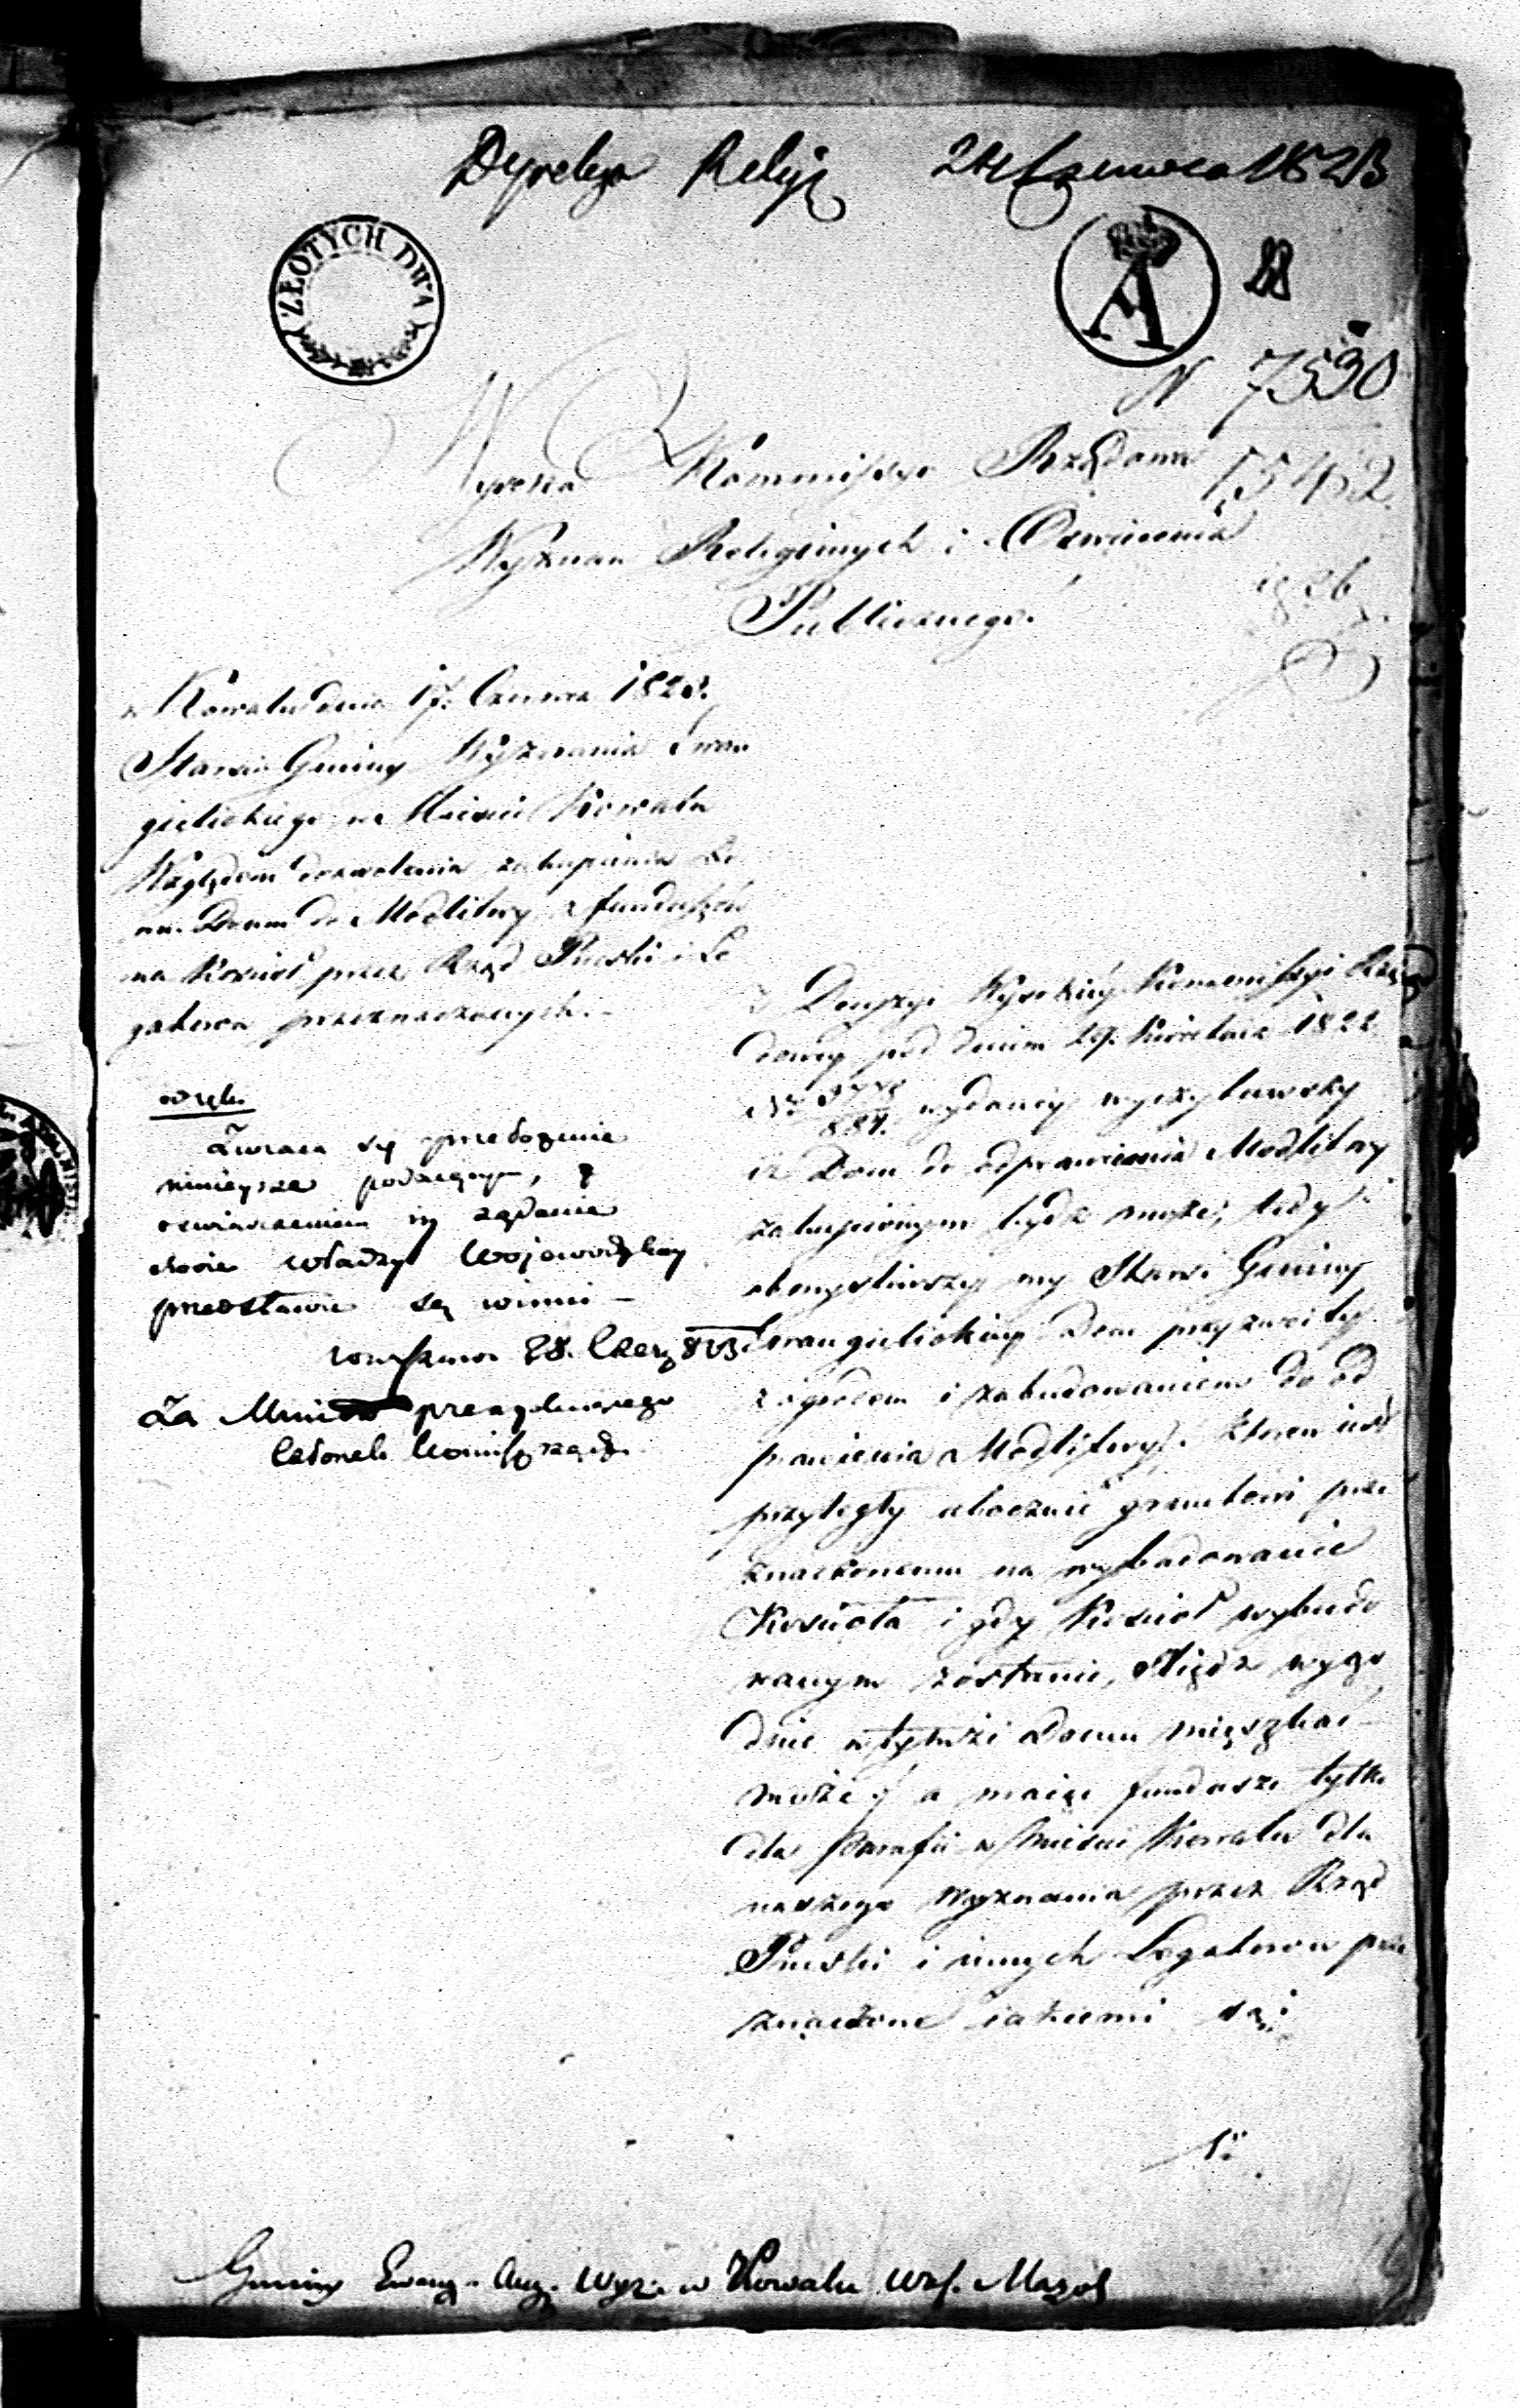 Dyrekcya Religij 24 Czerwca 1823
ZŁOTYCH DWA
A
N 7530
15462
Wysoka Kommissyo Rządowa
Wyznań Religijnych i Oświecenia
Publicznego!
w Kowalu dnia 17. Czerwca 1823.
Starsi Gminy Wyznania Ewan
gielickiego w Mieście Kowalu
Względem dozwolenia zakupienia Do
mu Domu do Modlitwy z funduszów
na Kościoł przez Rząd Pruski i Le
gatorów przeznaczonych.
Zwraca się przełożenie
ninieysze podaiącym, z
oświadczeniem iż żądanie
swoie władzy Woiewódzkiey
przedstawić są winni –
Warszawa 28. Czerw 823
Za Ministra prezyduiącego
Członek Kommiss rządz.
Z Decyzyi Wysokiey Kommissyi Rzą
dowey pod dniem 29. Kwietnia 1822
wydaney wyczytawszy
iż Dom do odprawienia Modlitwy
zakupionym bydź może, tedy
obmyśliwszy my Starsi Gminy
Ewangielickiey Dom przyzwoity
z ogrodem i zabudowaniem do od
prawienia Modlitwy, ktoren iest
przyległy ubocznie gruntowi prze
znaczonemu na wybudowanie
Kościoła i gdy Kościoł wybudo
wanym zostanie, Xiądz wygo
dnie w tymże Domu mieszkać
może, a maiąc fundusze tylko
dla Parafii w Mieście Kowalu dla
naszego Wyznania przez Rząd
Pruski i innych Legatorów prze
znaczone iakiemi są:
1º
Gminy Ewang. Aug. Wyz. w Kowalu Wdz. Mazow